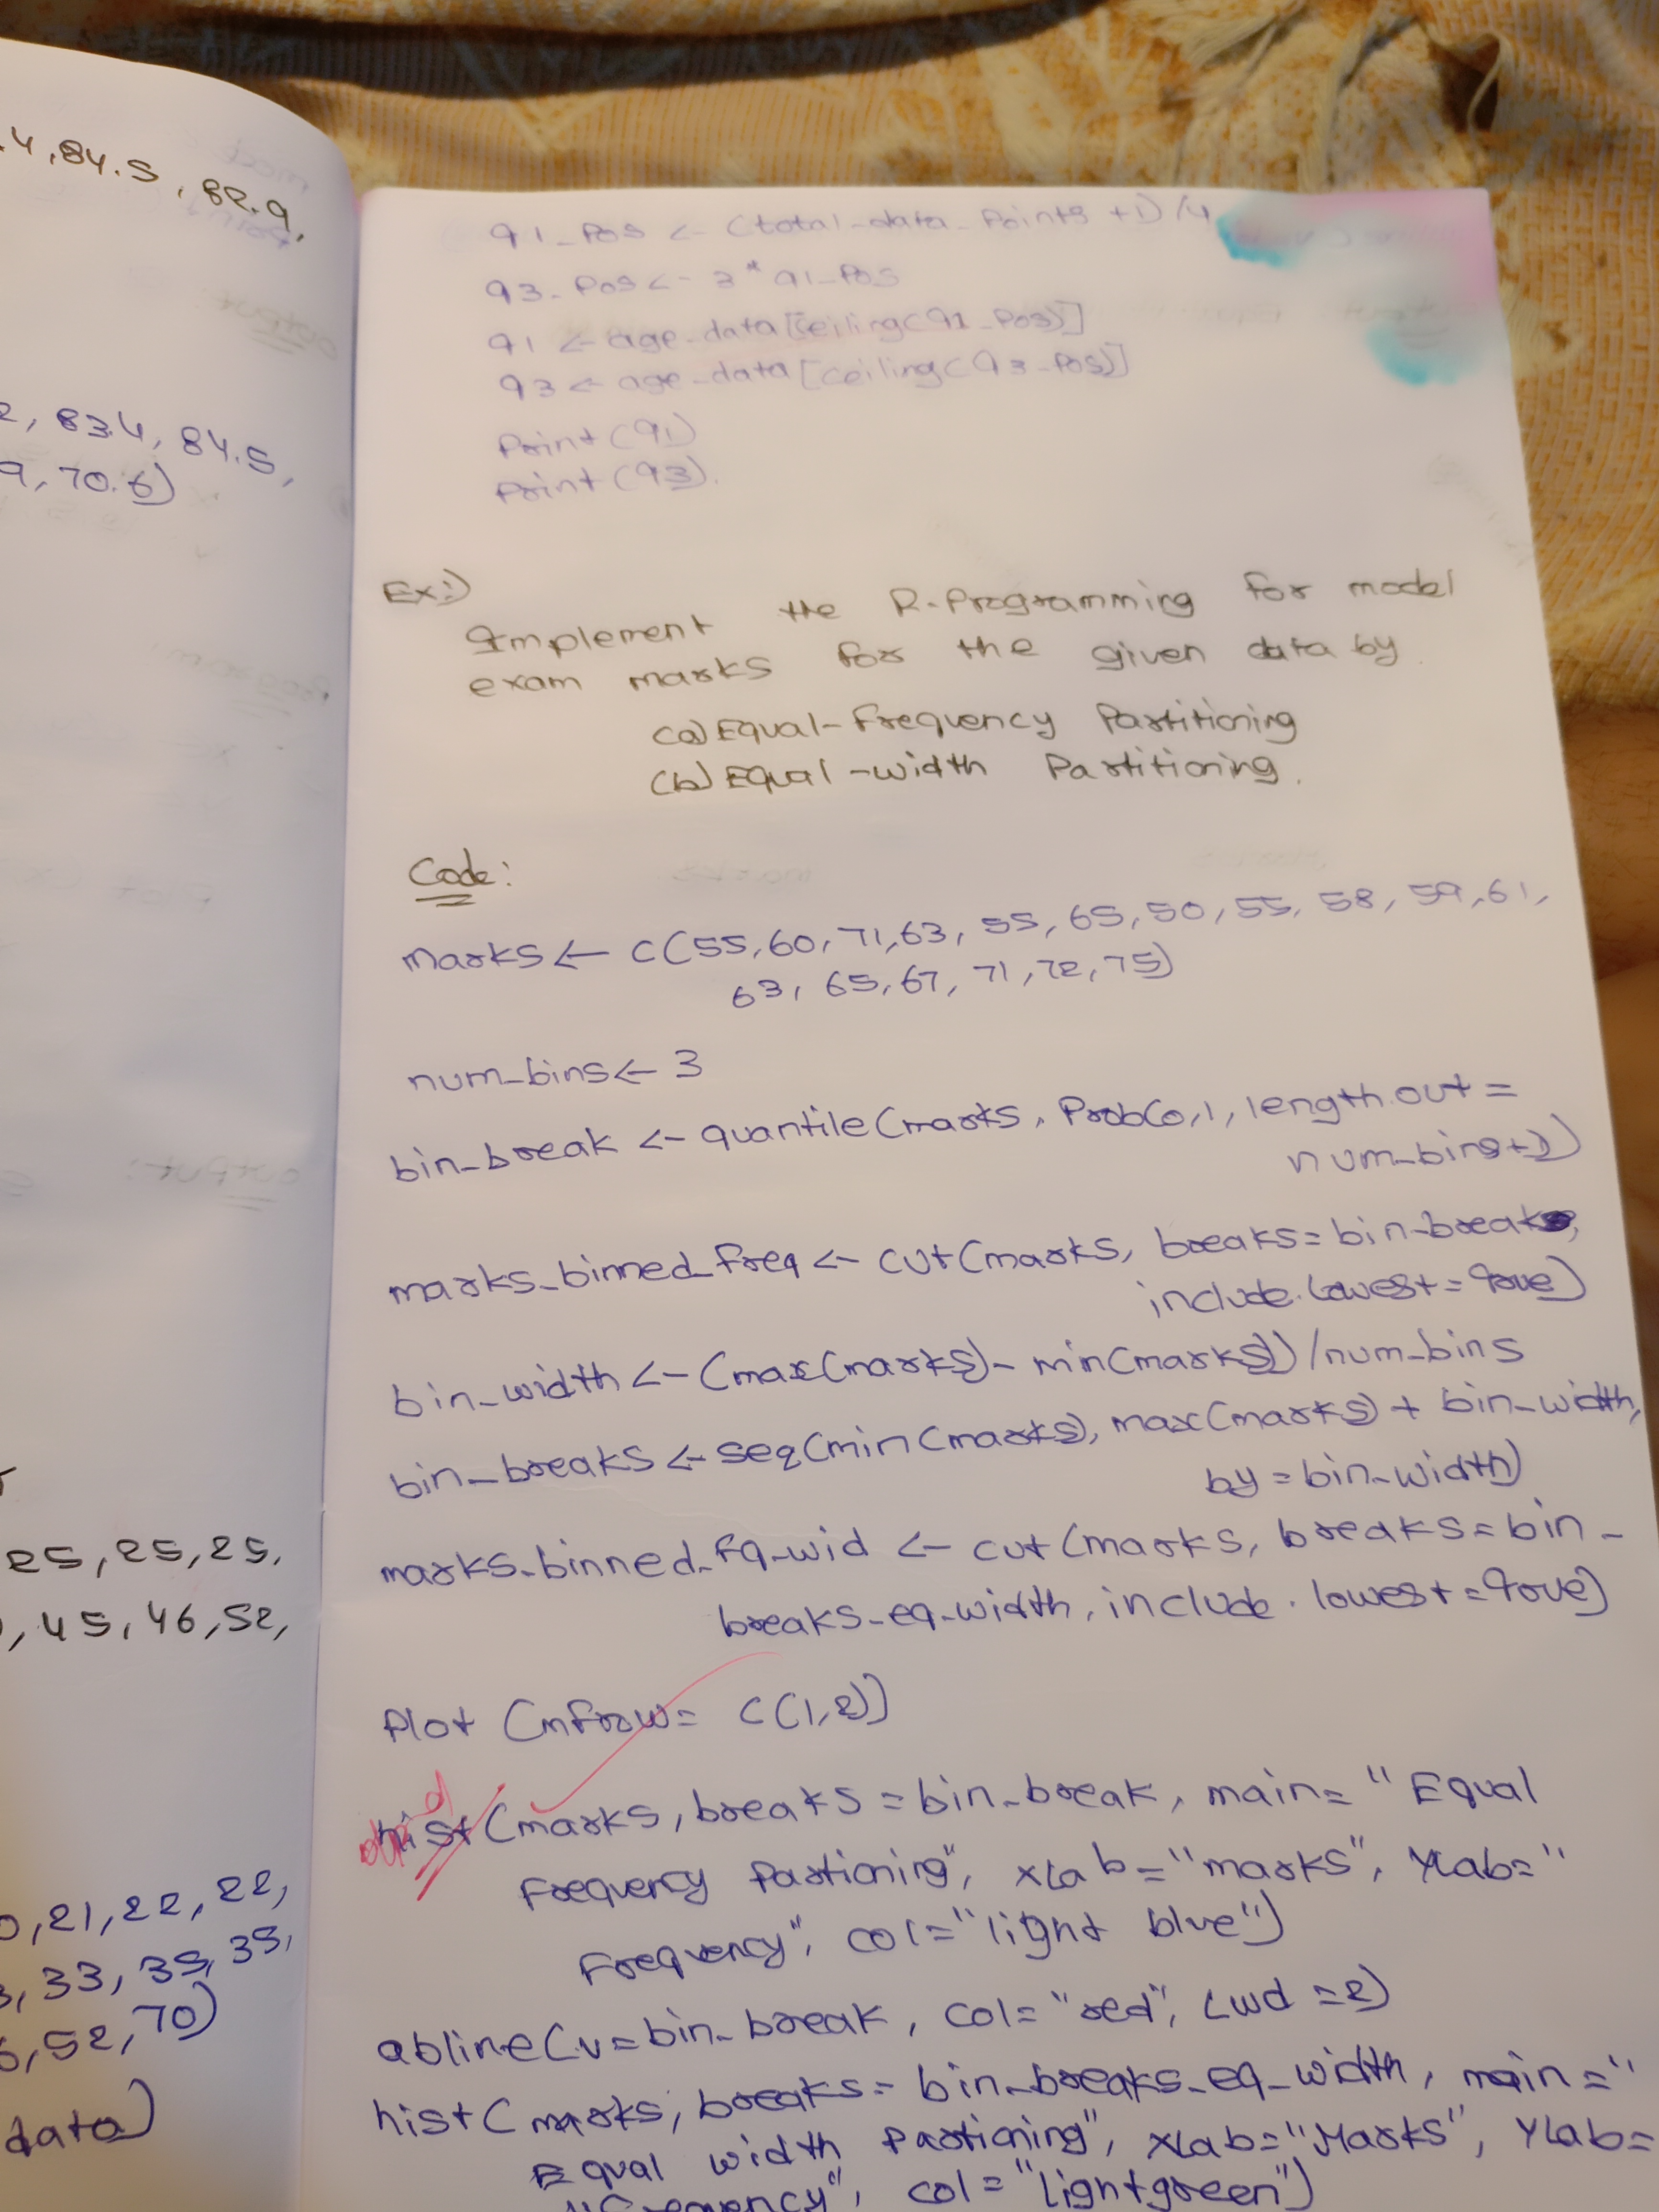 .4, 84.5, 82.9,
2, 83.4, 84.5,
9, 70.6)
25, 25, 25,
, 45, 46, 52,
0, 21, 22, 22,
3, 33, 35, 35,
6, 52, 70)
data)
q1_Pos <- (total_data_Points +1)/4
q3_Pos <- 3*q1_Pos
q1 <- age_data[ceiling(q1_Pos)]
q3 <- age_data[ceiling(q3_Pos)]
Print(q1)
Print(q3).
Ex:)
Implement the R-Programming for model
exam marks for the given data by
(a) Equal-Frequency Partitioning
(b) Equal-width Partitioning.
Code:
marks <- c(55, 60, 71, 63, 55, 65, 50, 55, 58, 59, 61,
63, 65, 67, 71, 72, 75)
num_bins <- 3
bin_break <- quantile(marks, Prob(0,1, length.out =
num_bins+1))
marks_binned_freq <- cut(marks, breaks= bin-break,
include.lowest = True)
bin_width <- (max(marks) - min(marks))/num_bins
bin_breaks <- seq(min(marks), max(marks) + bin_width,
by = bin_width)
marks_binned_eq_wid <- cut(marks, breaks = bin_
breaks_eq_width, include.lowest = True)
Plot (mfrow= c(1,2))
hist(marks, breaks = bin_break, main= "Equal
Frequency Partioning", xlab="marks", ylab="
Frequency", col="light blue")
abline(v=bin_break, col="red", Lwd =2)
hist(marks, breaks= bin_breaks_eq_width, main ="
Equal width Partioning", xlab="Marks", Ylab=
"Frequency", col="lightgreen")